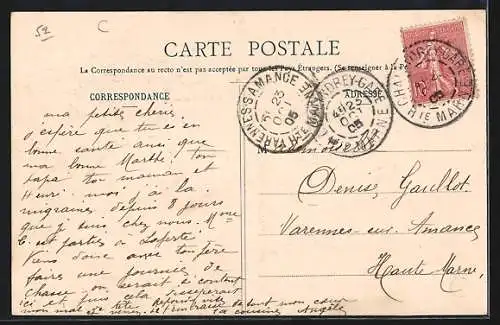 52
C
CARTE POSTALE
La Correspondance au recto n'est pas acceptée par tous les Pays Étrangers. (Se renseigner à la
CORRESPONDANCE
ADRESSE
VARENNES S AMANCE
23
OCT
05
HTE MARNE
CHAUDREY-GARE
23
OCT
05
HTE MARNE
ma petite chérie,
j'espère que tu es en
bonne santé ainsi que
ma bonne Marthe, ton
papa ta maman et
Henri. moi j'ai la
migraine depuis 8 jours
que je suis chez nous. Mme
C. est partie à Laferté
Viens donc avec ton père
faire une journée de
chasse on serait si content
ici et puis cela dissiperait
mon mal de tête
de tout mon cœur
ta cousine Angèle
M
Denise Gaullot.
Varennes-sur-Amance
Haute Marne.